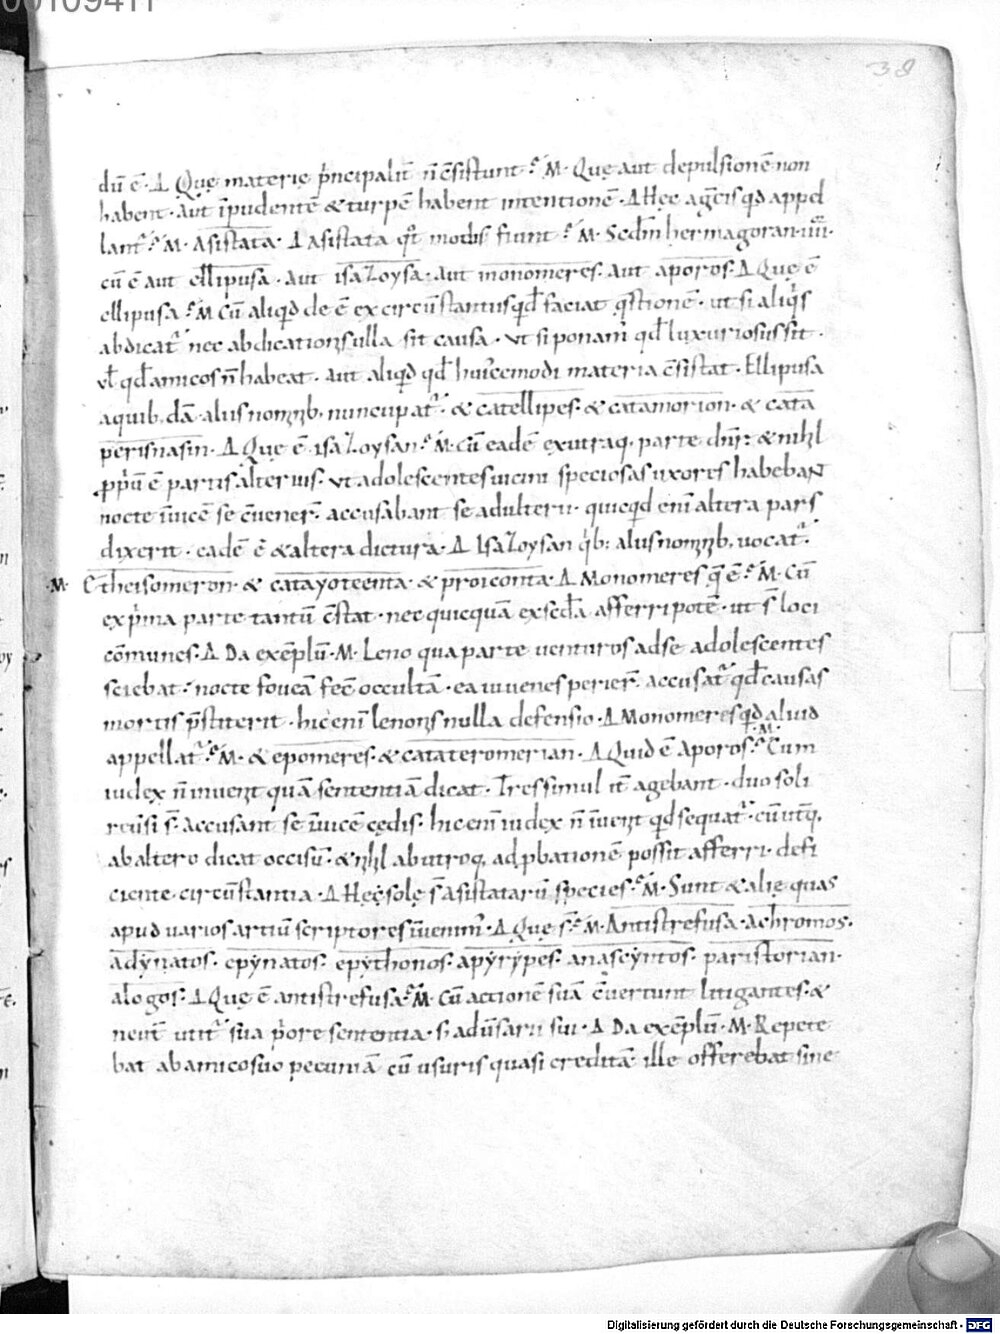 00109411
38
dū ē· Δ Quę materię p̄ncipalit̄ n̄ c̄sistunt? M· Quę aut depulsionē non
habent· aut īpudentē & turpē habent intentionē· Δ Hęc agn̄eis qd appel
lant᷑? M· Asistata· Δ asistata qt̄ modis fiunt? M· Secdm̄ hermagoran· IIII·
cū ē aut ellipusa· aut isazoysa· aut monomeres· aut aporos· Δ Quę ē
ellipusa? M Cū aliqid de ē ex circūstantiis qd̄ faciat q̄stionē· ut si aliq̄s
abdicat᷑ nec abdicationis ulla sit causa· Vt si ponam᷑ qd̄ luxuriosus sit·
vl̄ qd̄ amicos n̄ habeat· aut aliqid qd̄ hui᷑cemodi materia c̄sistat· Ellipusa
a quib, dā aliis nominib, nuncupat᷑· & catellipes· & catamorion· & cata
perisnasin· Δ Quę ē isazoysan? M· Cū eadē ex utraq, parte dn̄r: & nihil
ꝓpriū ē partis alterius· Vt adolescentes uicini speciosas uxores habebaN̄
nocte īuicē se c̄uener̄· accusabant se adulterii· quicqid eni altera pars
dixerit· eadē ē & altera dictura· Δ Isazoysan q̄b: aliis nominib, uocat᷑·
M· Etheisomeron· & catayoteenta· & proiconta· Δ Monomeres q̄ ē? M· Cū
ex p̄ma parte tantū c̄stat· nec quicquā ex secd̄a afferri potē· ut s̄ loci
cōmunes· Δ Da exēplū· M· Leno qua parte venturos ad se adolescentes
sciebat· nocte foueā fec̄ occultā· ea iuuenes perier̄· accusat᷑ qd̄ causas
mortis p̄stiterit· hic eni lenonis nulla defensio· Δ Monomeres qid aliud
appellat᷑? M· & epomeres· & catateromerian· Δ Quid ē aporos? M· Cum
iudex n̄ inuenit quā sententiā dicat· Tres simul it̄ agebant· duo soli
reūsi s̄· accusant se īuicē cędis· hic eni iudex n̄ īuenit qd sequat᷑· cū utq̄,
ab altero dicat occisū· & nihil ab utroq, ad ꝓbationē possit afferri· defi
ciente circūstantia· Δ Hęę solę s̄ asistatarū species? M· Sunt & alię quas
apud varios artiū scriptores īuenim᷑· Δ Quę s̄? M· Antistrefusa· achromos·
adynatos· epynatos· epythonos· apyrypes· anascyntos· paristorian·
alogos· Δ Quę ē antistrefusa? M· Cū actionē suā c̄uertunt litigantes· &
neut̄ utit᷑ sua p̄ore sententia· s; aduersarii sui· Δ Da exēplū· M· Repete
bat ab amico suo pecuniā cū usuris quasi creditā· ille offerebat sine
Digitalisierung gefördert durch die Deutsche Forschungsgemeinschaft - DFG